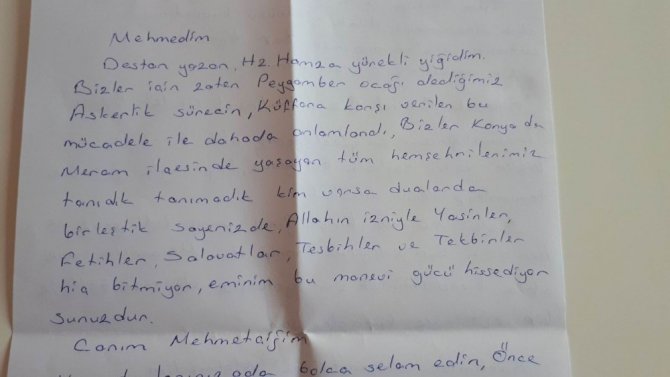 Mehmedim
Destan yazan, Hz. Hamza yürekli yiğidim.
Bizler için zaten Peygamber ocağı dediğimiz
Askerlik sürecin, Küffara karşı verilen bu
mücadele ile dahada anlamlandı, Bizler Konya da
Meram ilçesinde yaşayan tüm hemşehrilerimiz
tanıdık tanımadık kim varsa dualarda
birleştik sayenizde, Allahın izniyle Yasinler,
Fetihler, Salavatlar, Tesbihler ve Tekbirler
hiç bitmiyor, eminim bu manevi gücü hissediyor
sunuzdur.
Canım Mehmetciğim
bolca selam edin, Önce